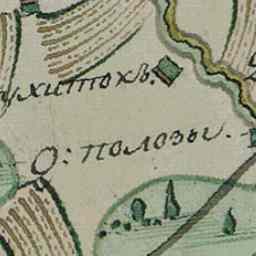 ухитокъ.
О: полозы.